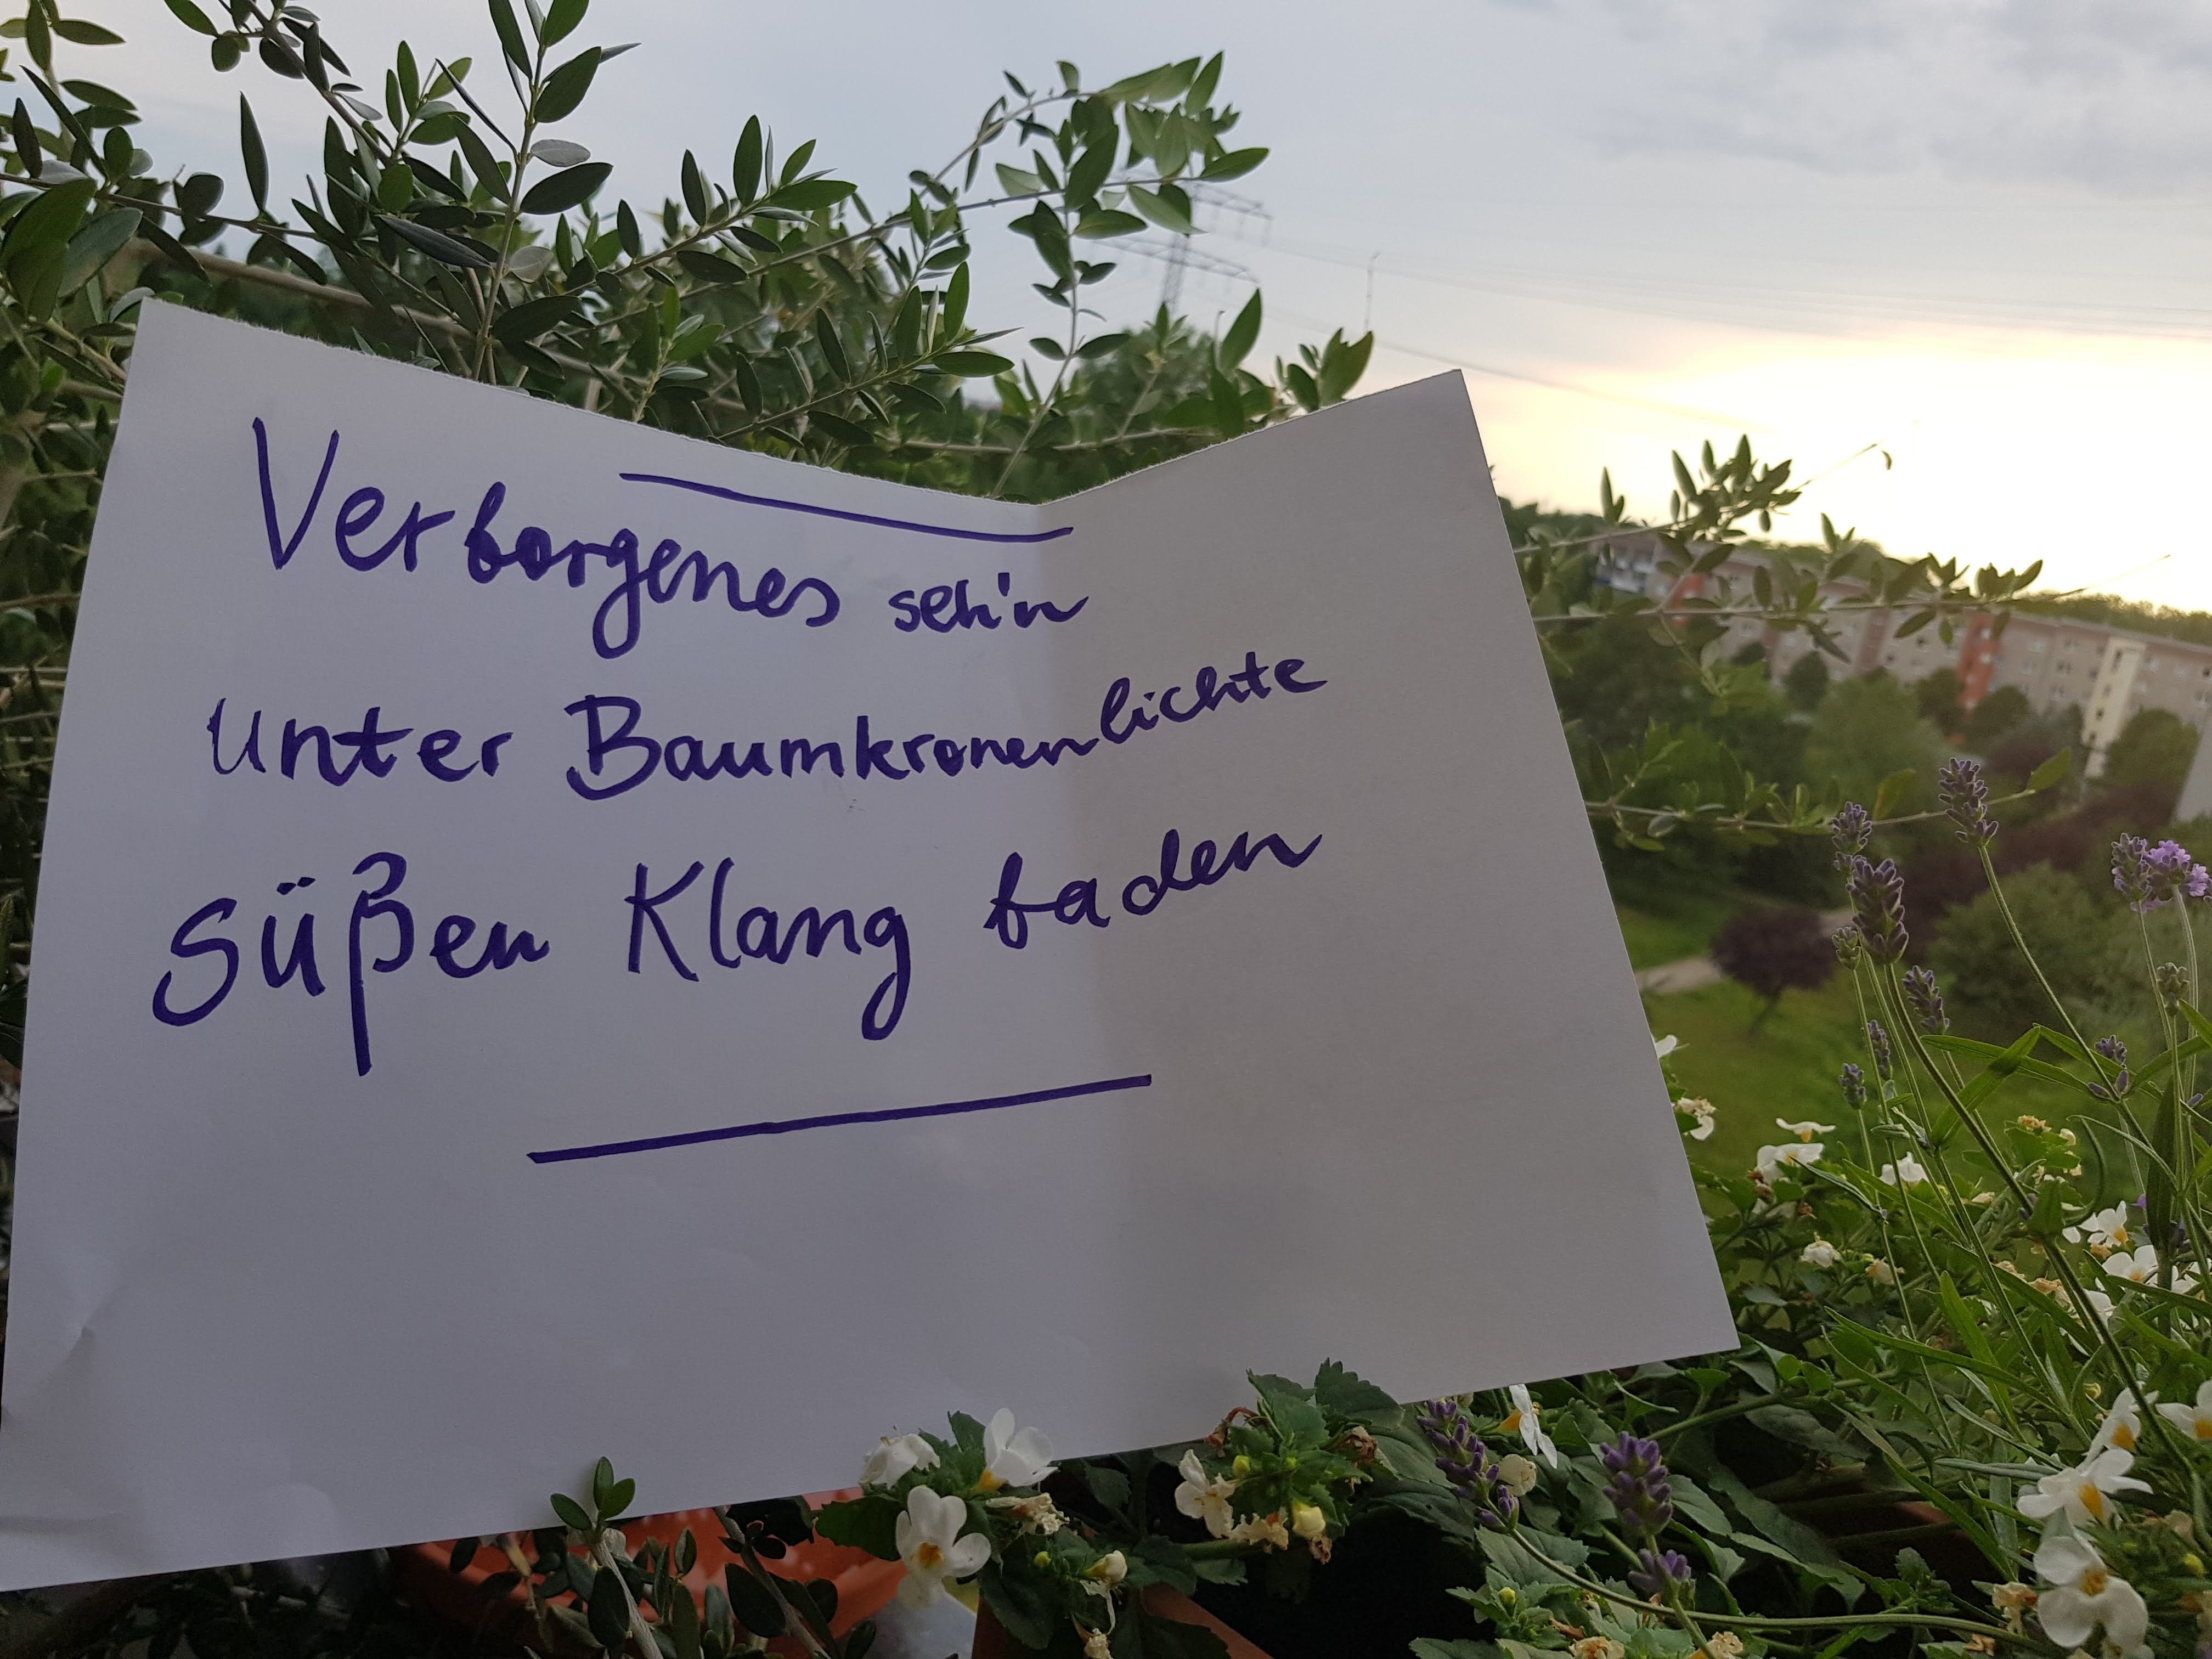 Verborgenes seh'n
unter Baumkronenlichte
süßen Klang baden